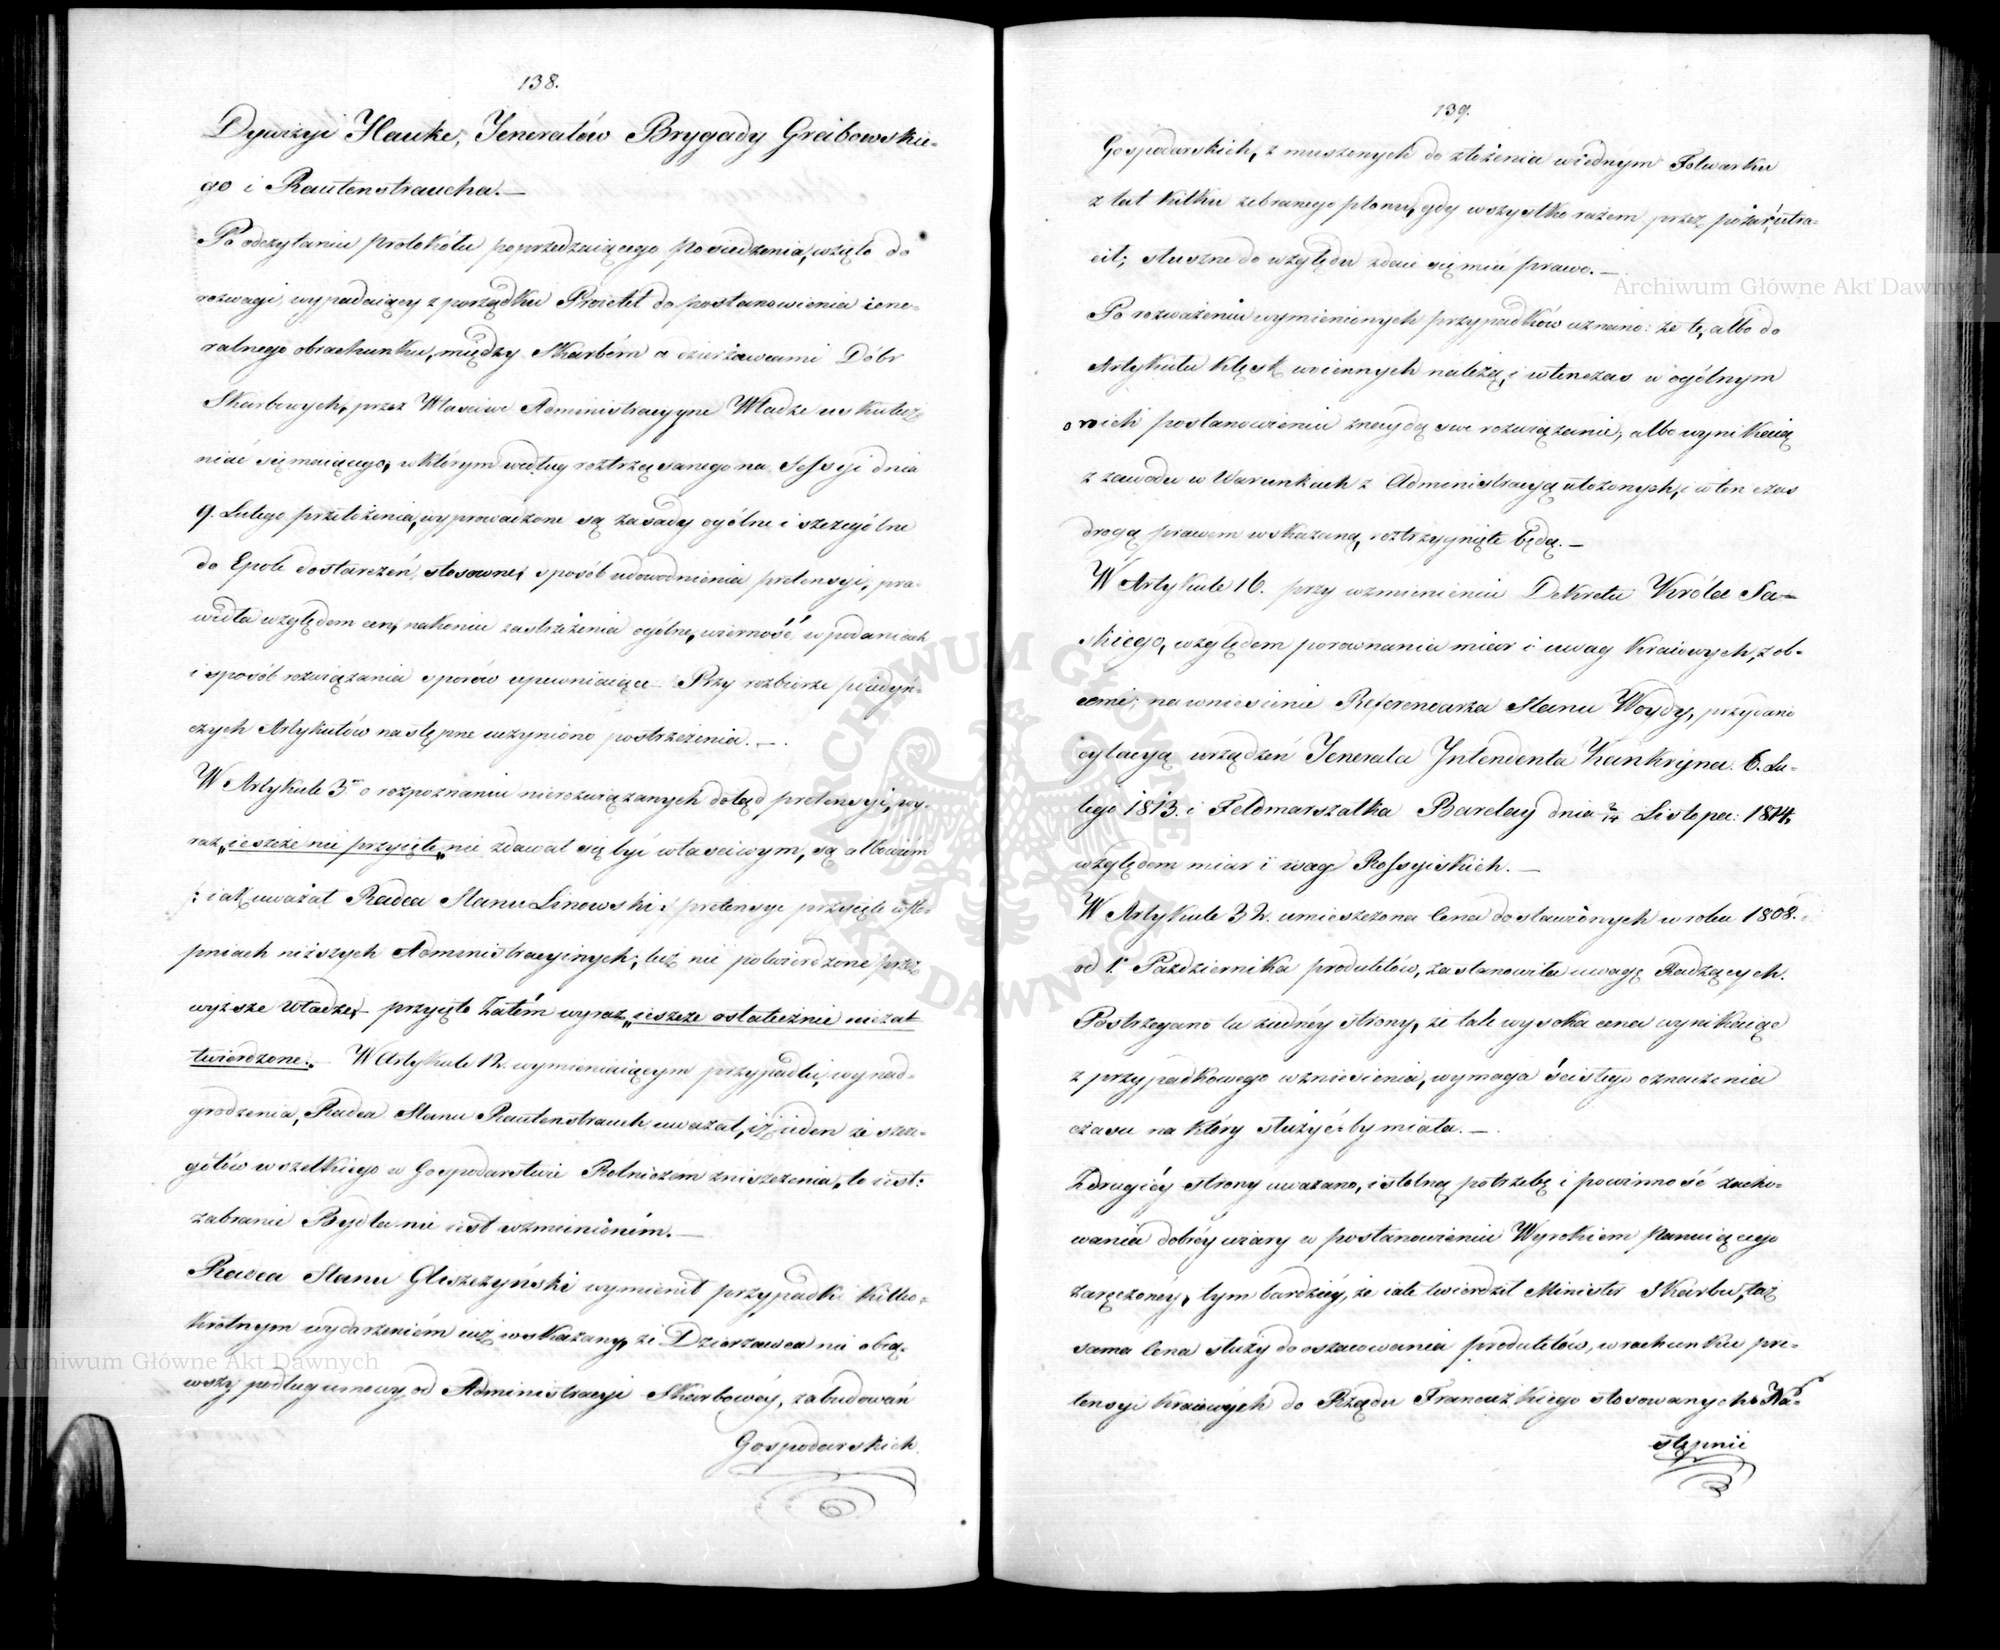 138.
Dywizyi Hauke, Jenerałów Brygady Grabowskie-
go i Rautenstraucha.—
Po odczytaniu protokółu poprzedzaiącego posiedzenia, wzięto do
rozwagi, wypadaiący z porządku Proiekt do postanowienia iene-
ralnego obrachunku, między Skarbém a dzierżawcami Dóbr
Skarbowych, przez Właściwe Administracyyne Władze uskutecz-
niać się maiącego, w którym według roztrząsanego na Sessyi dnia
9. Lutego przełożenia, wyprowadzone są zasady ogólne i szczególne
do Epok dostarczeń, stosowney sposób udowodnienia pretensyi, pra-
widła względem cen, nakoniec zastrzeżenia ogólne, wierność w podaniach
i sposób rozwiązania sporów upewniaiące.— Przy rozbiorze poiedyń-
czych Artykułów następne uczyniono postrzeżenia.—
W Artykule 3. o rozpoznaniu nierozwiązanych dotąd pretensyi, wy-
raz „ieszcze nie przyięte„ nie zdawał się być właściwym, są albowiem
: iak uważał Radca Stanu Linowski : pretensye przyięte w sto-
pniach niższych Administracyinych, lecz nie potwierdzone przez
wyższe władze, przyięto Zatém wyraz „ieszcze ostatecznie niezat
twierdzone.„ W Artykule 12. wymieniaiącym przypadki, wynad-
grodzenia, Radca Stanu Rautenstrauch uważał, iż ieden ze szcze-
gółów wszelkiego w Gospodarstwie Rolniczém zniszczenia, to iest:
zabranie Bydła nie iest wzmienioném.—
Radca Stanu Gliszczyński wymienił przypadki kilko-
krotnym wydarzeniém iuż wskazany, że Dzierżawca nie obią-
wszy podług umowy od Administracyi Skarbowéy, zabudowań
Gospodarskich
139.
Gospodarskich, z muszonych do złożenia w iednym Folwarku
z lat kilku zebranego plonu, gdy wszystko razem przez pożar utra-
cił; słuszne do względu zdaie się mia prawo.—
Po rozważeniu wymienionych przypadków uznano: że te, albo do
Artykułu klęsk woiennych należą, i wtenczas w ogólnym
o nich postanowieniu znaydą swe rozwiązanie, albo wynikaią
z zawodu w Warunkach z Administracyą ułożonych, i w ten czas
drogą prawem wskazaną, roztrzygnięte będą.—
W Artykule 16. przy wzmienieniu Dekretu Króla Sa-
skiego, względem porównania miar i wag Kraiowych, z ob-
cemi, na wniesienie Referendarza Stanu Woydy, przydano
cytacyą urządzeń Jenerała Intendenta Kankryna. 6. Lu-
tego 1813. i Feldmarszałka Barclay dnia 2/14 Listopa: 1814.
względem miar i wag Rossyiskich.—
W Artykule 32. umieszczona Cena dostawionych w roku 1808.
od 1. Października produktów, zastanowiła uwagę Radzących.
Postrzegano tu z iednéy strony, że tak wysoka cena wynikaiąc
z przypadkowego wzniesienia, wymaga ścisłego oznaczenia
czasu na który służyćby miała.—
Z drugiéy strony uważano, istotną potrzebę i powinność zacho-
wania dobréy wiary w postanowieniu Wyrokiem Panuiącego
zaręczonéy, tym bardziéy, że iak twierdził Minister Skarbu, taż
sama Cena służy do oszacowania produktów, w rachunku pre-
tensyi kraiowych do Rządu Francuzkiego stosowanych. Na-
stępnie
Archiwum Główne Akt Dawnych
Archiwum Główne Akt Dawnych
ARCHIWUM GŁÓWNE AKT DAWNYCH